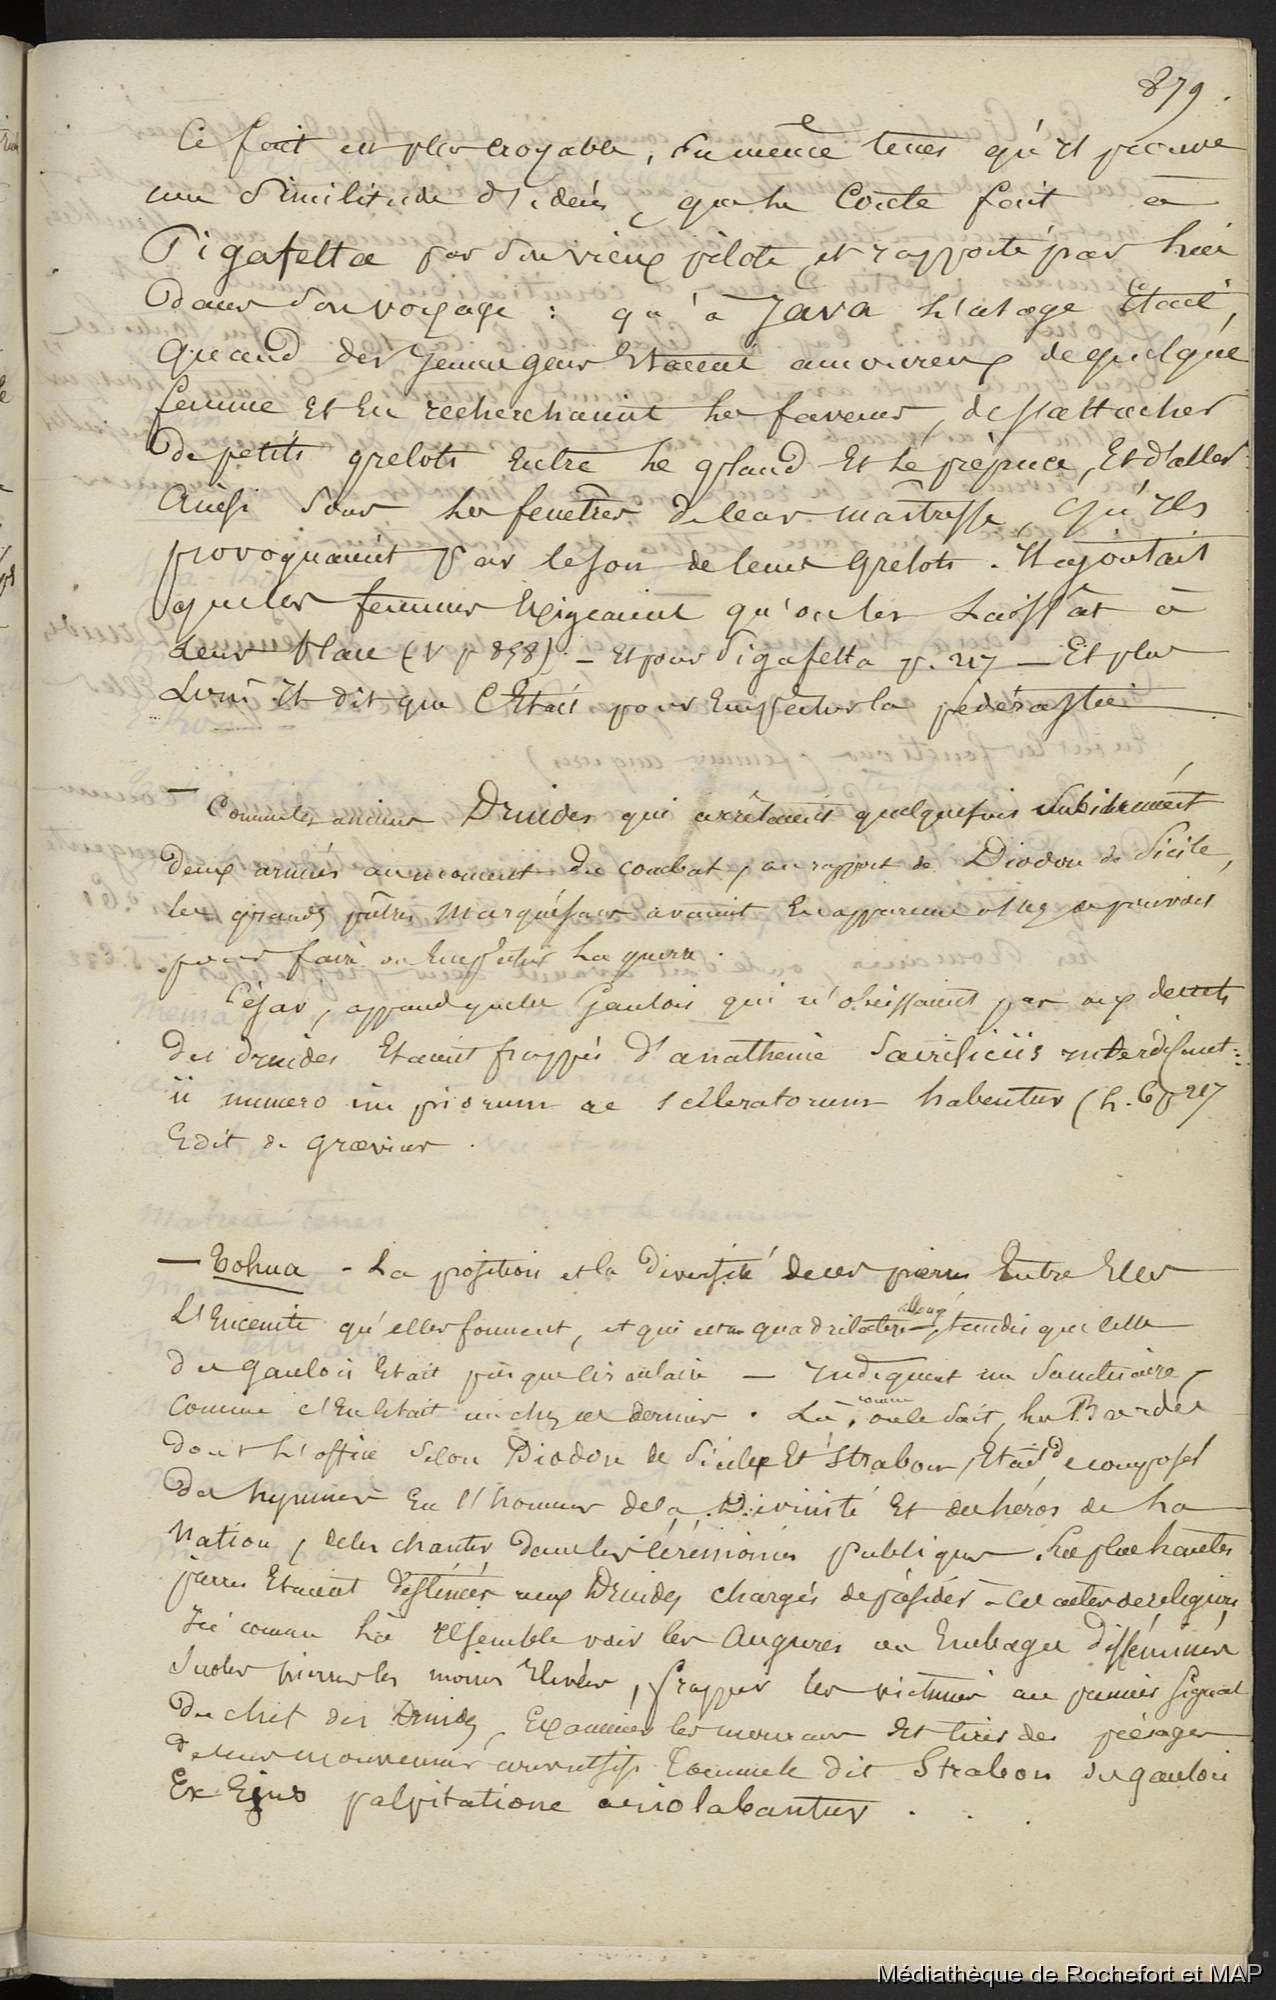 879.
Ce fait est plus croyable, en même tems qu'il prouve
une similitude d'idées, que le Conte fait à
Pigafetta par son vieux pilote et rapporté par lui
dans son voyage : qu'à Java l'usage était,
quand des jeunes gens étaient amoureux de quelque
femme et en recherchaient les faveurs, de s'attacher
de petits grelots entre le gland et le prépuce, et d'aller
ainsi sous les fenêtres de leur maîtresse, qu'ils
provoquaient par le son de leurs grelots. Il ajoutait
que les femmes exigeaient qu'on les laissât à
leur place (V p 898) - et pour Pigafetta p. 217 — Et plus
il dit que c'était pour empêcher la pédérastie
— Comme les anciens Druides qui arrêtaient quelquefois subitement
deux armées au moment du combat, au rapport de Diodore de Sicile,
les grands prêtres Marquésans avaient en apparence assez de pouvoir
pour faire ou empêcher la guerre.
César, apprend que les Gaulois qui n'obéissaient pas aux décrets
des druides étaient frappés d'anathème Sacrificiis interdicunt :
ii numero im piorum ac sceleratorum habentur (L. 6 p 217
Edit de Graevius.
— Tohua - La position et la diversité de ces pierres entre elles
L'Enceinte qu'elles forment, et qui est un quadrilatère allongé, tandis que celle
des gaulois était presque circulaire — indiquent un Sanctuaire,
comme c'en était un chez ces derniers. Là, comme on le sait, les Bardes
dont l'office selon Diodore de Sicile et Strabon, était de composer
des hymnes en l'honneur de la Divinité et des héros de la
Nation, de les chanter dans les cérémonies publiques. Les plus hautes
pierres étaient destinées aux Druides chargés de présider à ces actes de religion,
Ici comme là il semble voir les Augures ou Eubages disséminés
sur les pierres les moins élevées, frapper les victimes au premier signal
du chef des Druides, examiner les mourans et tirer des présages
de leurs mouvemens convulsifs Comme le dit Strabon des gaulois
Ex Ejus palpitatione ariolabantur .
Médiathèque de Rochefort et MAP